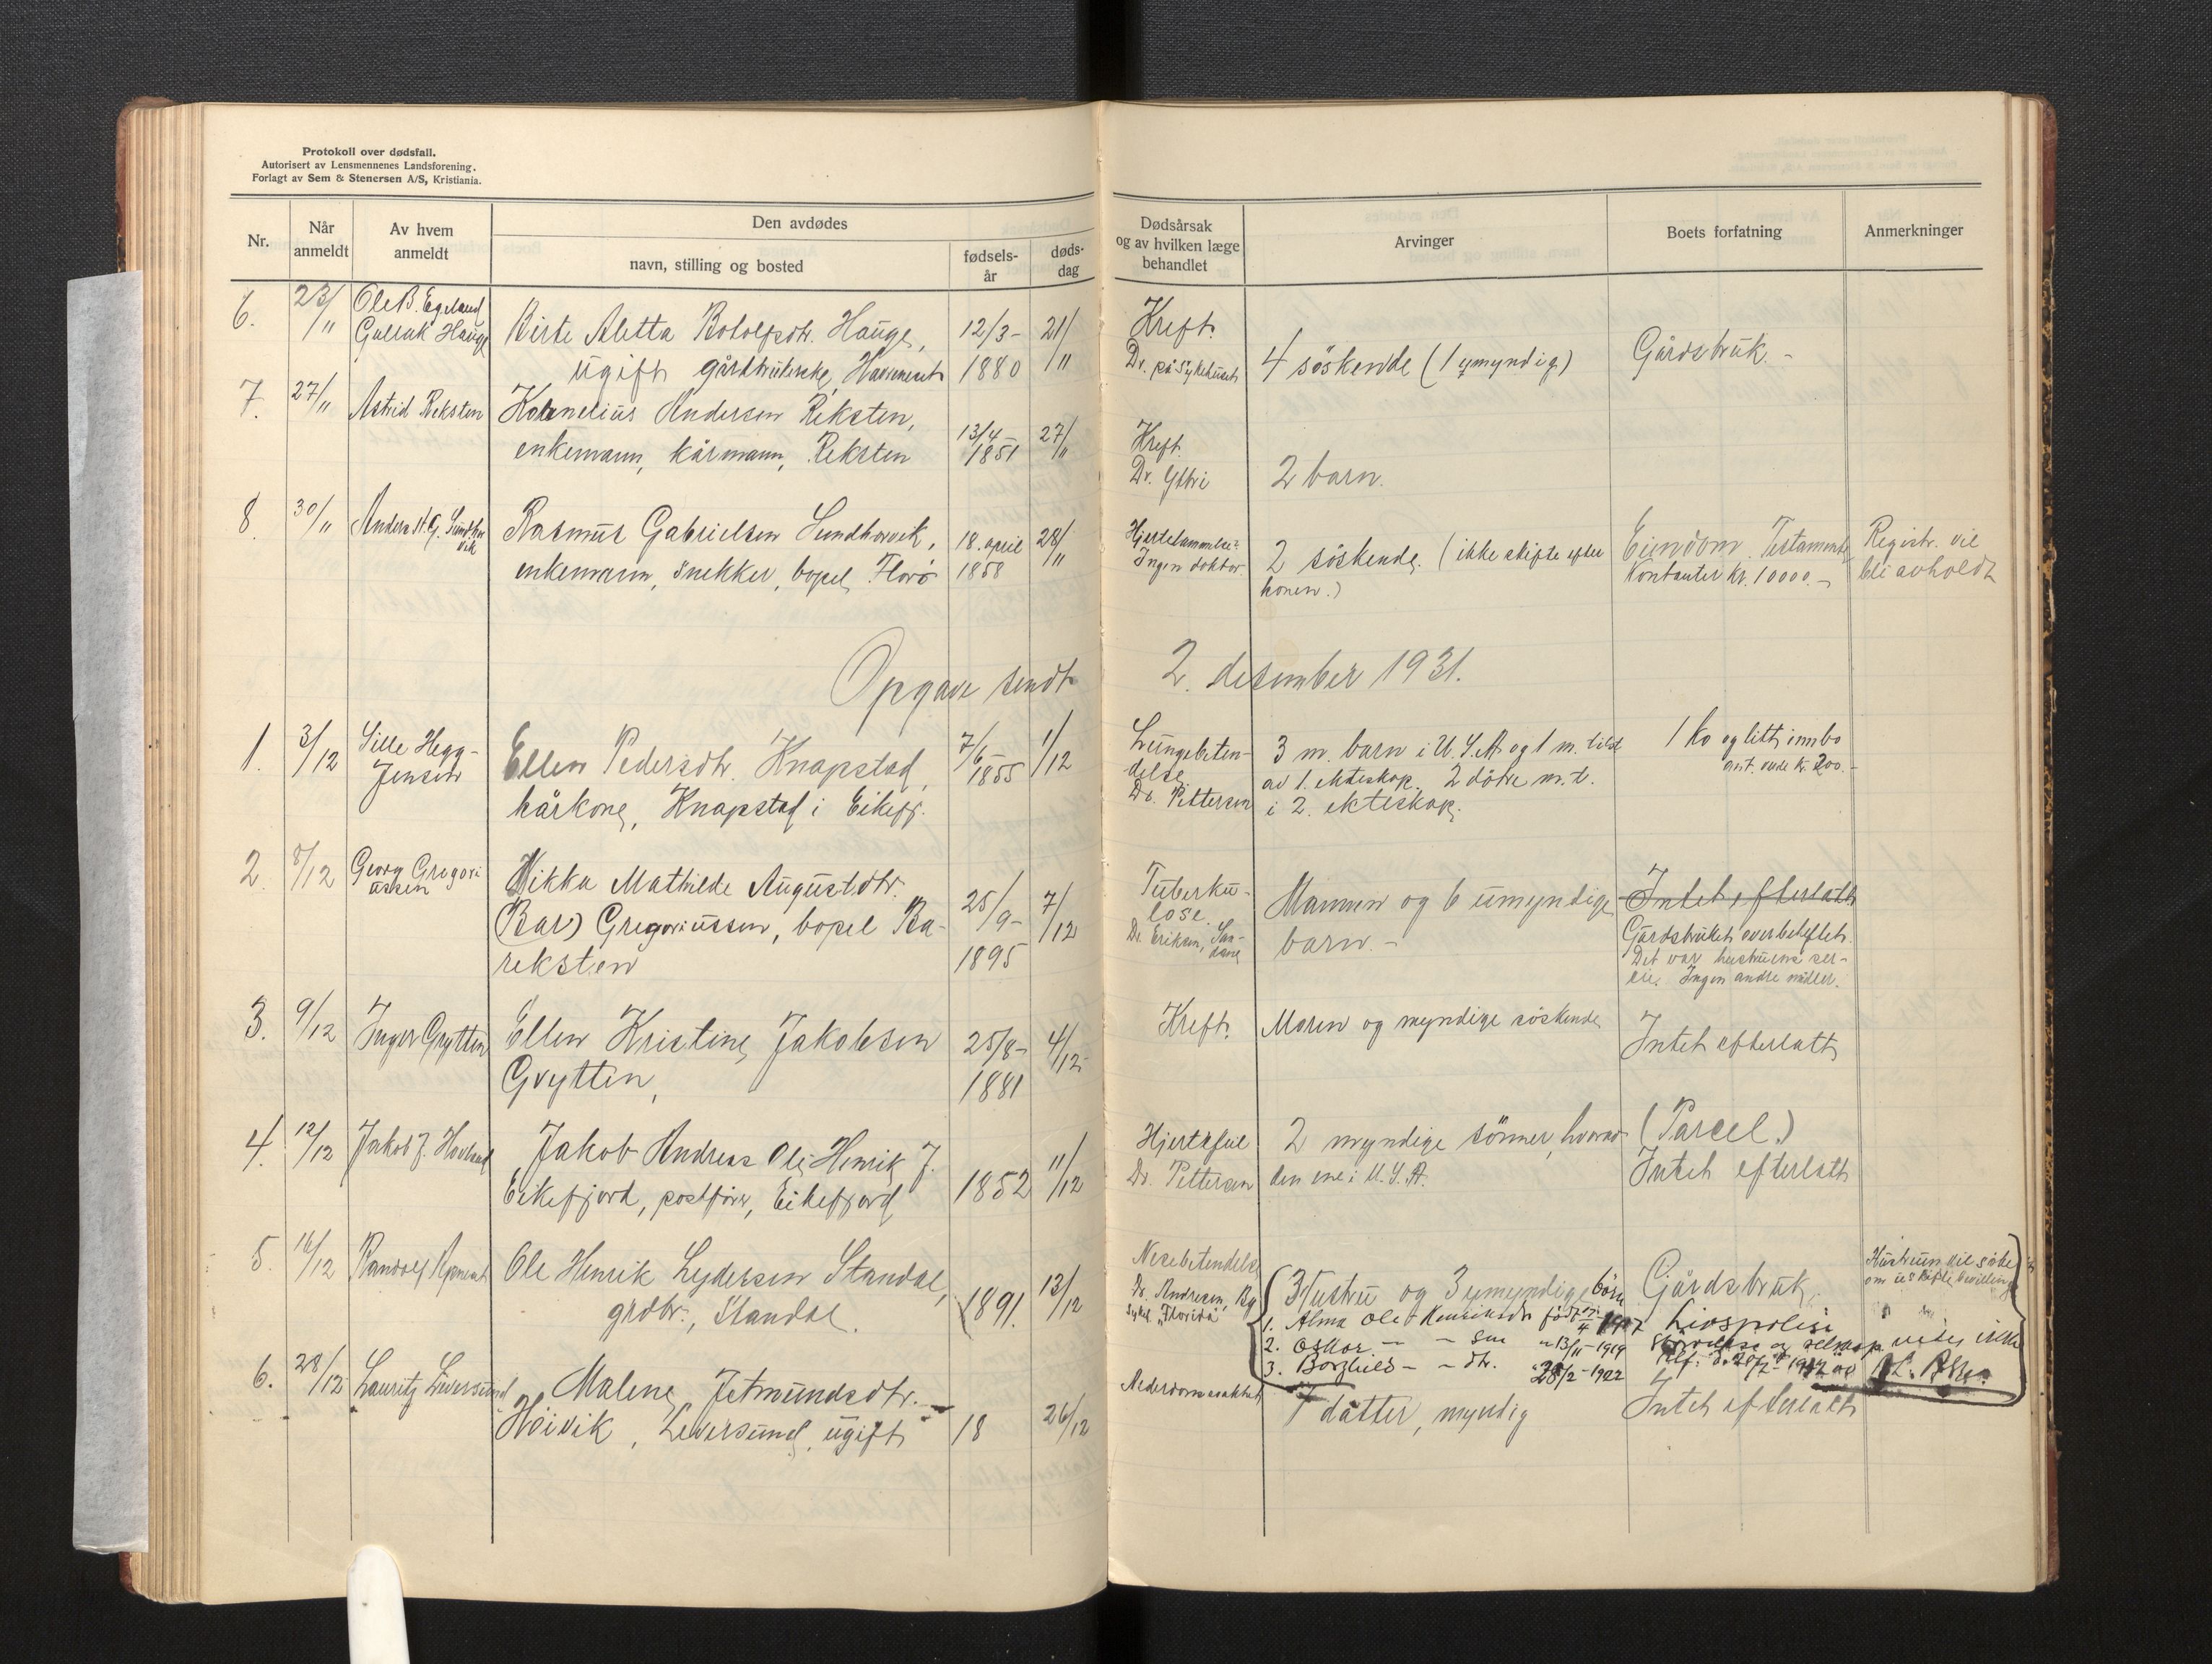 Protokoll over dødsfall.
Autorisert av Lensmennenes Landsforening.
Forlagt av Sem & Stenersen A/S, Kristiania.
Nr.
Når anmeldt
Av hvem anmeldt
Den avdødes
navn, stilling og bosted
fødsels-
år
døds-
dag
Dødsårsak
og av hvilken læge
behandlet
Arvinger
Boets forfatning
Anmerkninger
6. 23/11 Ole B. Egeland
Hauge
Birte Aletta Botolfsdtr. Hauge,
ugift gårdbrukerske,
12/3-
1880
21/11
Kreft.
Dr. på Sykehuset
4 søskende (1 umyndig)
Gårdsbruk. -
7. 27/11 Astrid Reksten
Kornelius Andersen Reksten,
enkemann, kårmann, Reksten
13/4-
1851
27/11
Kreft.
Dr.
2 barn.
8 30/11
Rasmus Gabrielsen Sundhovvik,
enkemann, snekker, bopel Florø
18. april
1858
28/11
Hjertelammelse?
Ingen doktor
2 søskende. (ikke skifte efter
konen.)
Eiendom. Testamente
Kontanter kr. 10000.-
Registr. vil
bli avholdt
Opgave sendt 2. desember 1931.
1. 3/12 Sille Hegg-
Jensen
Ellen Pedersdtr. Knapstad,
kårkone, Knapstad i Eikefj.
7/6-
1855
1/12
Lungebeten-
delse
Dr. Pettersen
3 m. barn i U.S.A og 1 m. tilst
av 1. ekteskap. 2 døtre m. t.
i 2. ekteskap.
1 ko og litt innbo
kr. 200.-
2. 8/12 Georg Gregori
ussen
Hikka Mathilde Augustdtr.
(Bar) Gregoriussen, bopel Ba-
reksten
25/9-
1895
7/12
Tuberku-
lose.
Dr. Eriksen, San-
dane
Mannen og 6 umyndige
barn. -
Intet efterlatt
Gårdsbruket overbeheftet.
Det var hustruens sær-
eie. Ingen andre midler.
3. 9/12 Inger Grytten
Ellen Kristine Jakobsen
Grytten,
25/8-
1881
4/12
Kreft.
Moren og myndige søskende
Intet efterlatt
4. 12/12 Jakob J. Hovland
Jakob Andreas Ole Henrik J.
Eikefjord, postfører, Eikefjord
1852
11/12
Hjertefeil
Dr. Pettersen
2 myndige sønner, hvorav
den ene i U.S.A.
(Parcel.)
Intet efterlatt
5. 16/12
Ole Henrik Lydersen Standal,
grdbr., Standal.
1891.
13/12
Dr. Andresen, Bg
Sykeh. "Florida"
Hustru og 3 umyndige børn
1. Alma Ole Henriksdtr født /4 1917
2. Oskar — - søn " 13/11-1919
3. Borghild — - dtr. " 28/2-1922
Gårdsbruk.
Livspolise
størrelse og selskap vides ikke
Hustruen vil søke
om uskifte bevilling
6. 28/12 Lauritz
Malene Jetmundsdtr.
Høivik, ugift
18
26/12
1 datter, myndig
Intet efterlatt